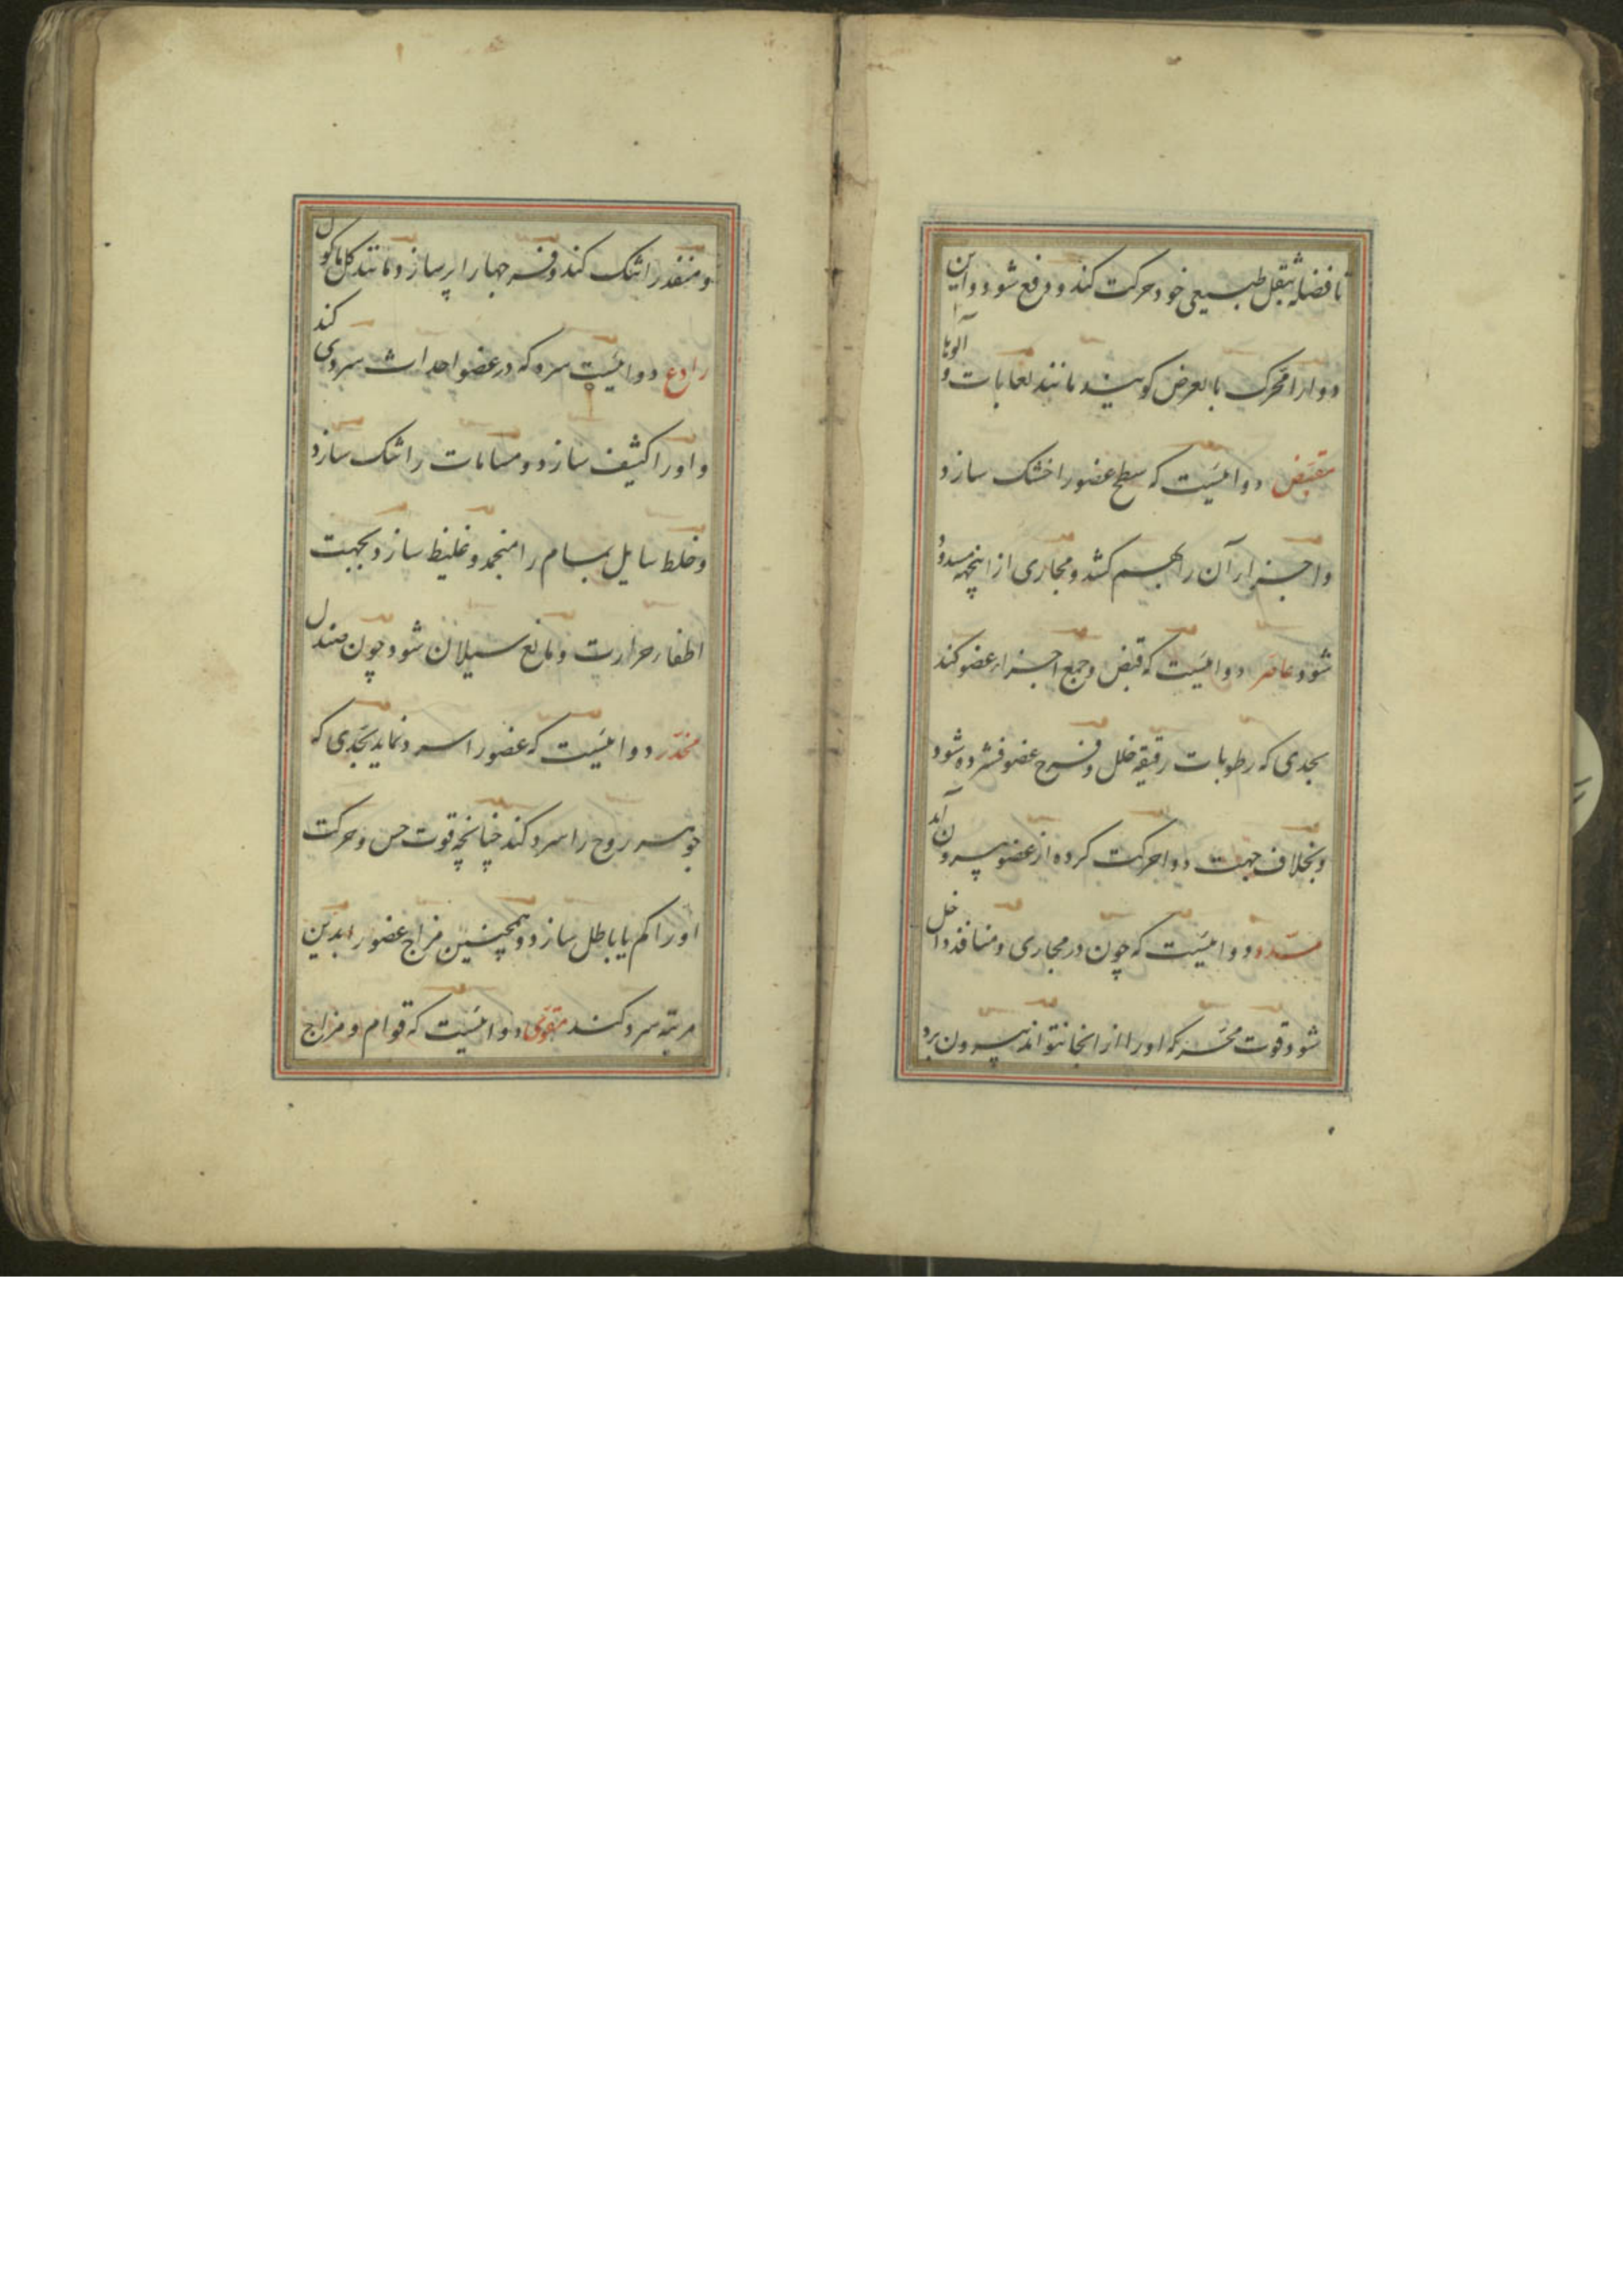 تا فضله بثقل طبیعی خود حرکت کند و دفع شود و این
دوا را محرک بالعرض کویند مانند لعابات و آلوها
مقبض دوائیست که سطح عضو را خشک سازد
و اجزاء آن را بهم کشد و مجاری از اینجهه مسدود
شود عاصر دوائیست که قبض و جمع اجزاء عضو کند
بحدی که رطوبات رقیقه خلل و فرج عضو فشرده شود
و بخلاف جهت دوا حرکت کرده از عضو بیرون آید
مسدد دوائیست که چون در مجاری و منافذ داخل
شود قوت محرکه او را از انجا نتواند بیرون برد
و منفذ را تنک کند و فرجها را پر سازد مانند کل ماکول
رادع دوائیست سرد که در عضو احداث سردی کند
و او را کثیف سازد و مسامات را تنک سازد
و خلط سایل بمسام را منجمد و غلیظ سازد بجهت
اطفاء حرارت و مانع سیلان شود چون صندل
مخدر دوائیست که عضو را سرد نماید بحدی که
جوهر روح را سرد کند چنانچه قوت حس و حرکت
او را کم یا باطل سازد و همچنین مزاج عضو را بدین
مرتبه سرد کند مقوی دوائیست که قوام و مزاج